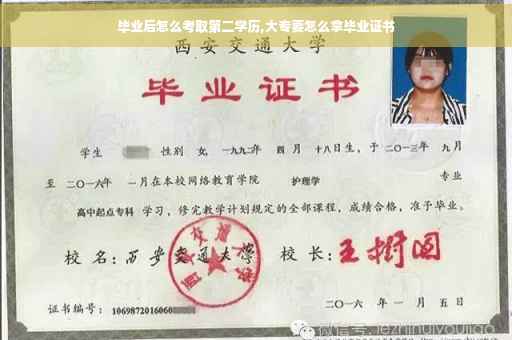 毕业后怎么考取第二学历,大专要怎么拿毕业证书
西安交通大学
毕业证书
学生 性别 女,一九九二年 四月 十八日生,于二〇一三年 九月
至 二〇一六年 一月在本校网络教育学院 护理学 专业
高中起点专科 学习,修完教学计划规定的全部课程,成绩合格,准予毕业。
校 名:西安交通大学 校 长:王树国
西安交通大学
证书编号:1069872016060
二〇一六 年 一 月 五 日
微信号:jezhinuiyoujiao